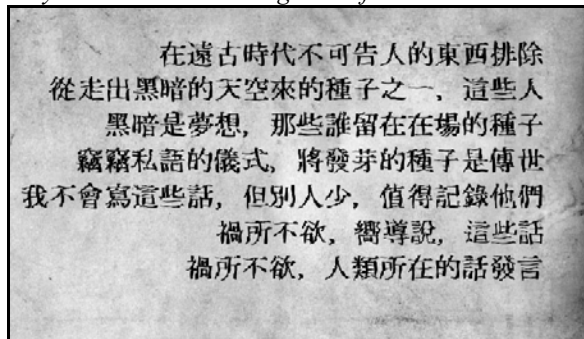 在遠古時代不可告人的東西排除
從走出黑暗的天空來的種子之一，這些人
黑暗是夢想，那些誰留在在場的種子
竊竊私語的儀式，將發芽的種子是傳世
我不會寫這些話，但別人少，值得記錄他們
禍所不欲，嚮導說，這些話
禍所不欲，人類所在的話發言